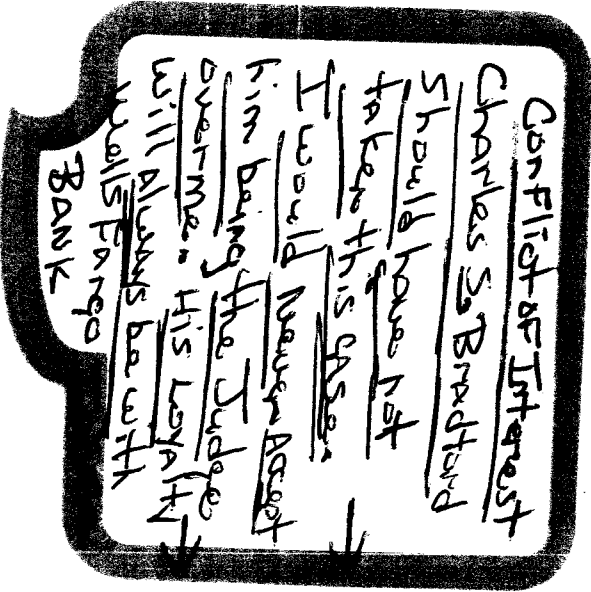 Conflict of Interest
Charles S. Bradford
Should have not
taken this CASE.
I would Never Accept
him being the Judge
over me. His Loyalty
will Always be with
Wells Fargo
BANK